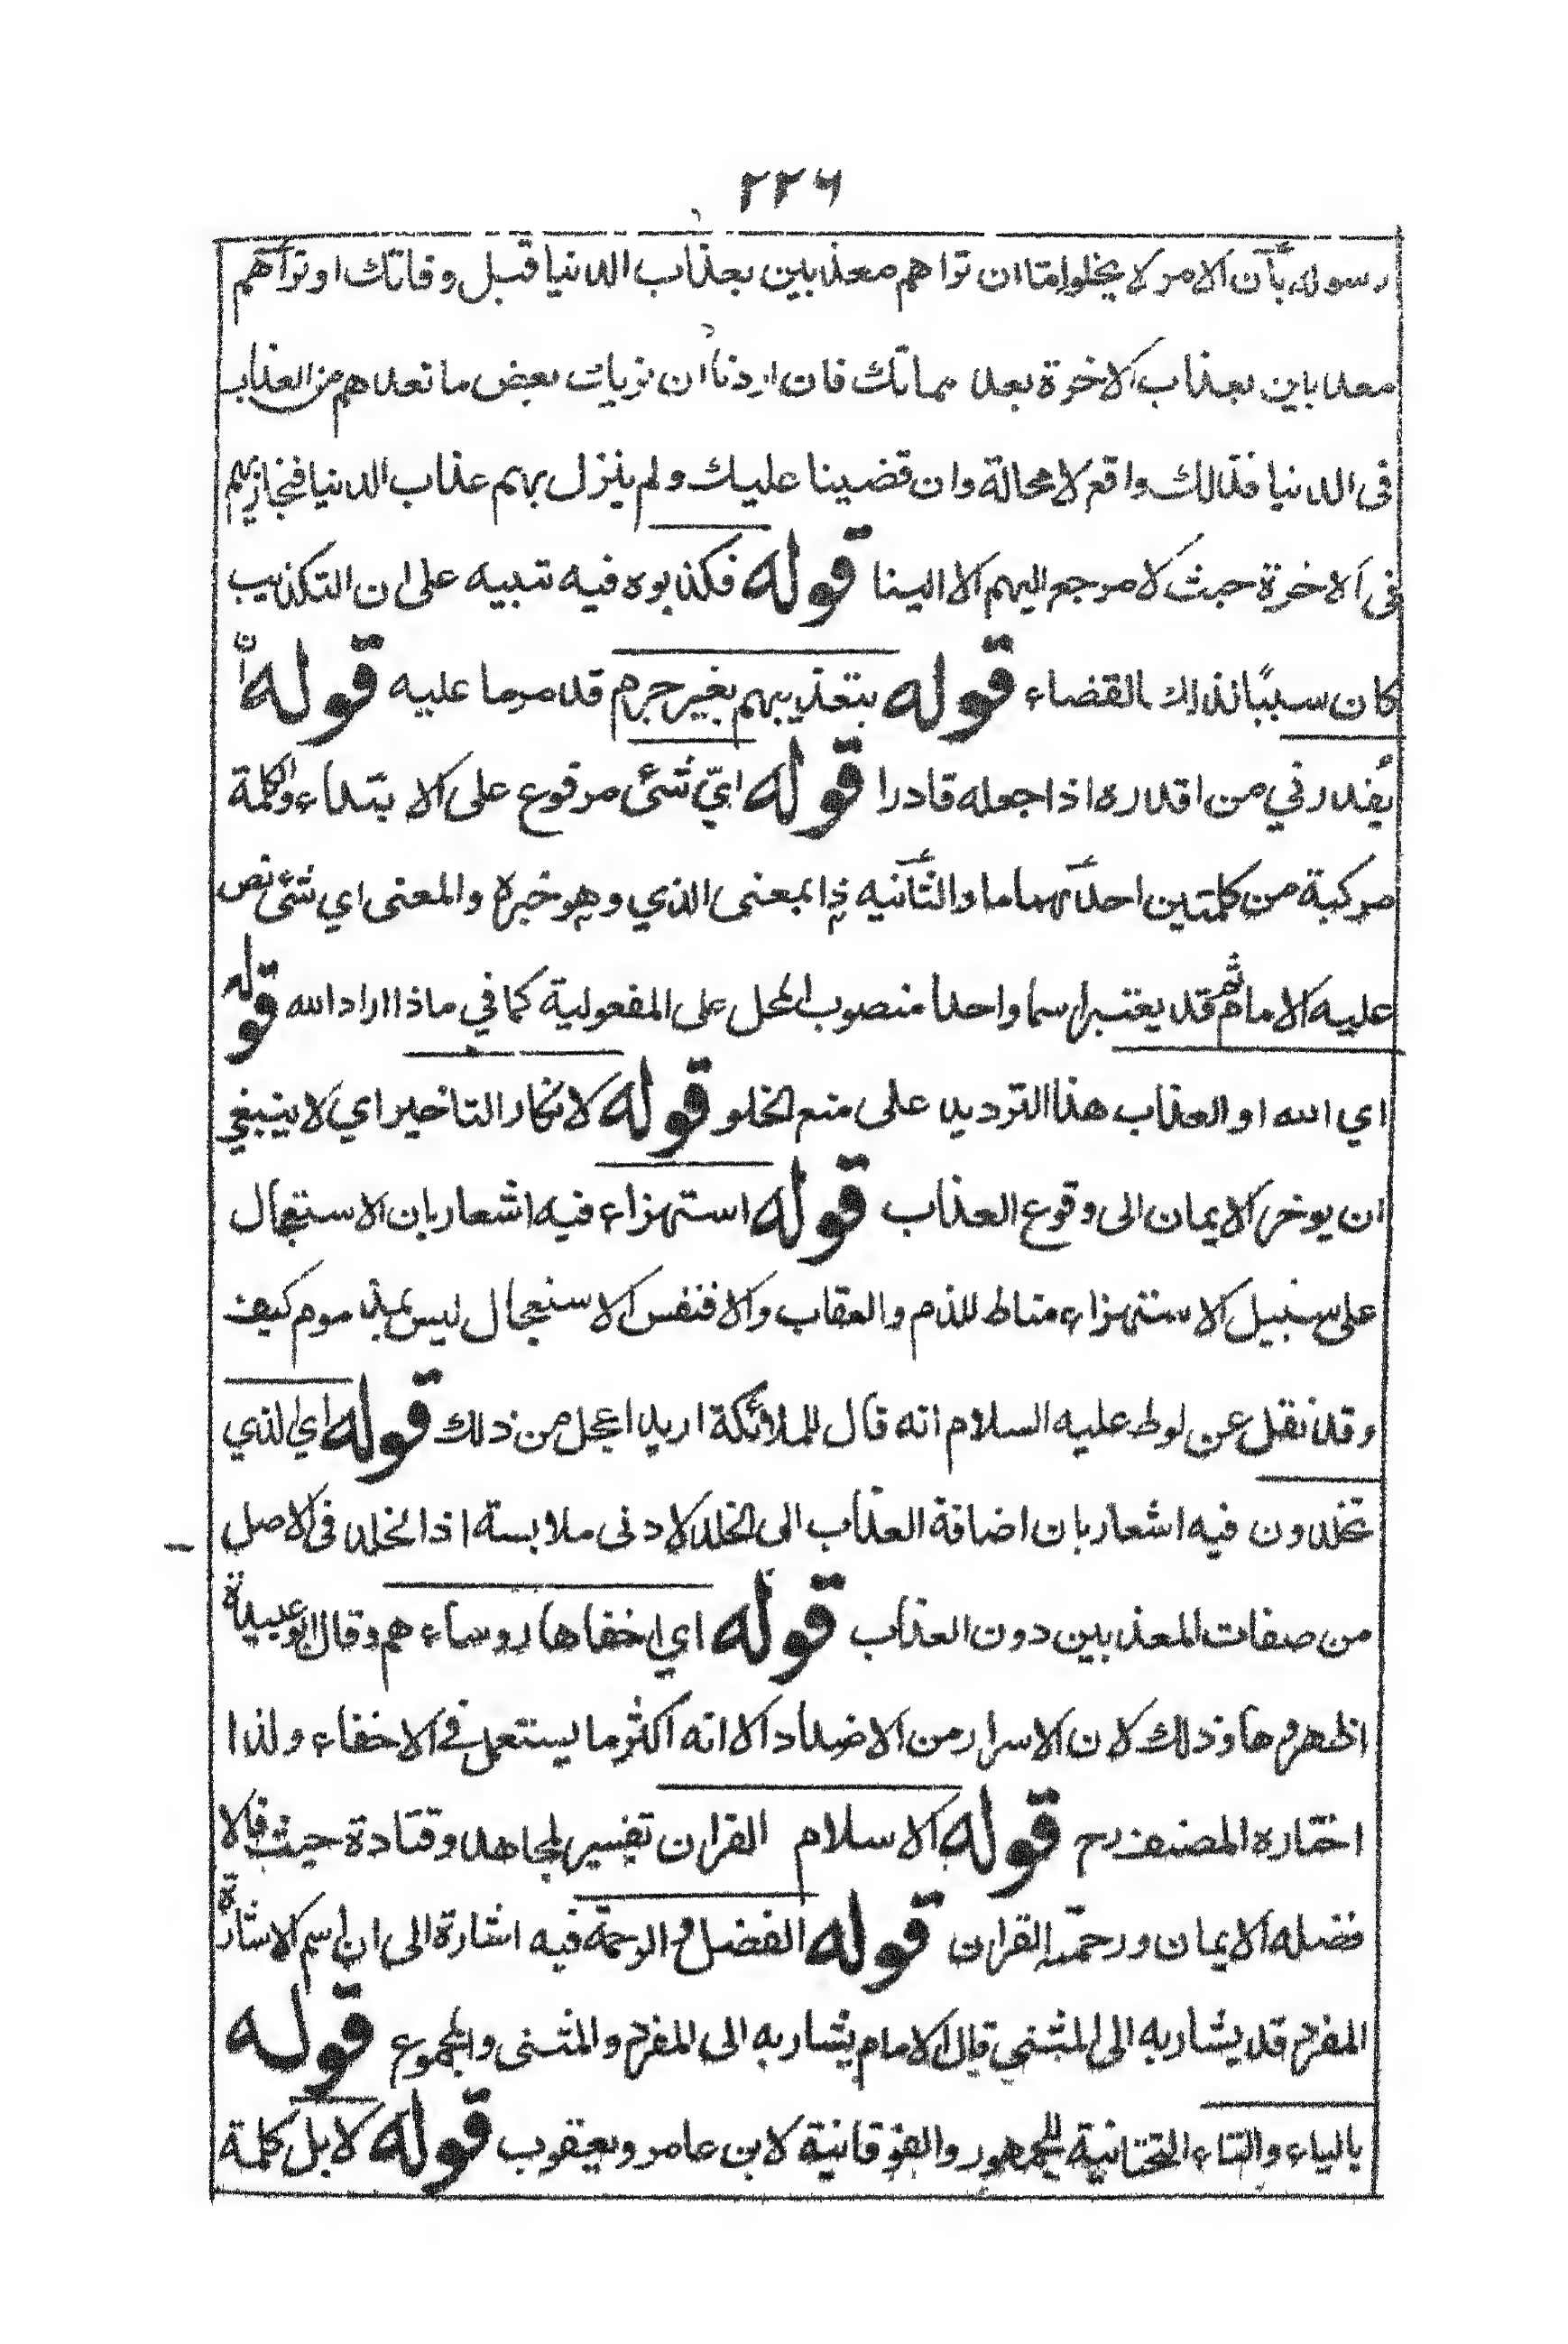 ٢٢٦
رسوله بأن الامر لا يخلو اما ان تراهم معذبين بعذاب الدنيا قبل وفاتك او تراهم
معذبين بعذاب الاخرة بعد مماتك فان اردنا ان نريك بعض ما نعدهم من العذاب
فى الدنيا فذالك واقع لا محالة وان قضينا عليك ولم ينزل بهم عذاب الدنيا فنجازيهم
فى الاخرة حيث لا مرجع اليهم الا الينا قوله فكذبوه فيه تنبيه على ان التكذيب
كان سببًا لذلك القضاء قوله بتعذيبهم بغير جرم قد مر ما عليه قوله ان
يُقدرني من اقدره اذا جعله قادرا قوله ايّ شئ مرفوع على الابتداء وكلمة
مركبة من كلمتين احدٰهما ما والثانيه ذا بمعنى الذي وهو خبره والمعنى اي شئ نص
عليه الامام ثم قد يعتبر اسما واحدا منصوب المحل على المفعولية كما في ماذا اراد الله قوله
اي الله او العذاب هذا الترديد على منع الخلو قوله لانكار التاخير اي لا ينبغي
ان يوخر الايمان الى وقوع العذاب قوله استهزاء فيه اشعار بان الاستعجال
على سبيل الاستهزاء مناط للذم والعقاب والا فنفس الاستعجال ليس بمذموم كيف
وقد نقل عن لوط عليه السلام انه قال للملائكة اريد اعجل من ذلك قوله اي الذي
تخلدون فيه اشعار بان اضافة العذاب الى الخلد لادنى ملابسة اذ الخلد فى الاصل
من صفات المعذبين دون العذاب قوله اي اخفاها روساءهم وقال ابو عبيدة
اظهروها وذلك لان الاسرار من الاضداد الا انه اكثر ما يستعمل في الاخفاء ولذا
اختاره المصنف رح قوله الاسلام القران تفسير لمجاهد وقتادة حيث قالا
فضله الايمان ورحمته القران قوله الفضل والرحمة فيه اشارة الى ان اسم الاشارة
المفرد قد يشار به الى المثنى قال الامام يشار به الى المفرد والمثنى والمجموع قوله
بالياء والتاء التحتانية للجمهور والفوقانية لابن عامر ويعقوب قوله لا بل كلمة